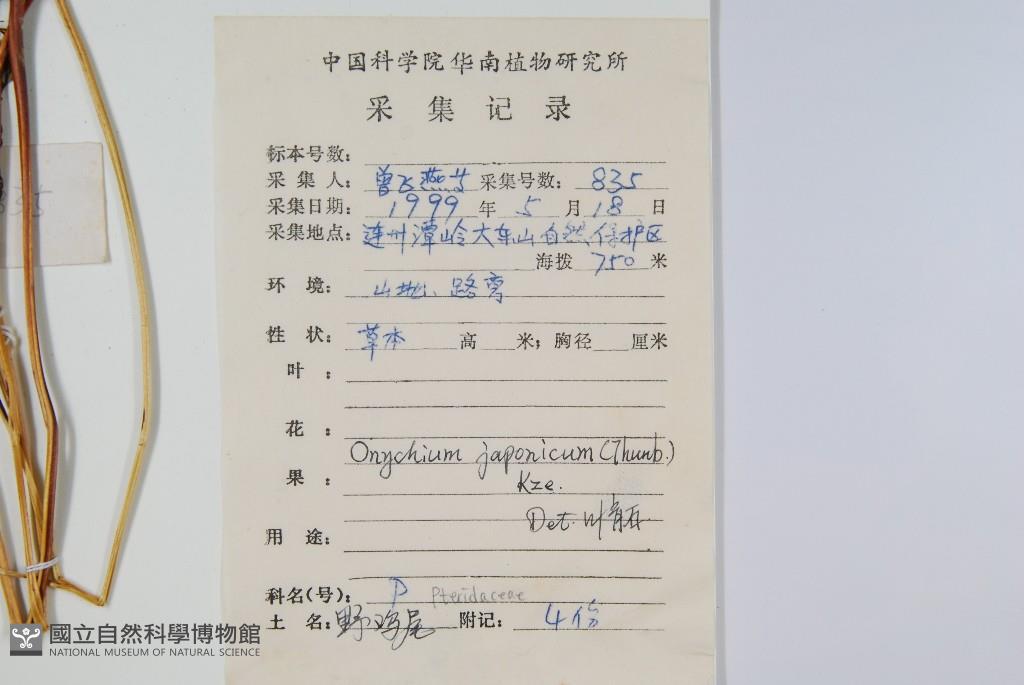 中国科学院华南植物研究所
采集记录
标本号数：
采集人：曾飞燕 采集号数：835
采集日期：1999年5月18日
采集地点：连州潭岭大东山自然保护区
海拨 750 米
环境：山地、路旁
性状：草本 高 米；胸径 厘米
叶：
花：
Onychium japonicum (Thunb.)
果：
Kze.
Det. 叶
用途：
科名(号)：P Pteridaceae
土名：野鸡尾 附记：4份
835
國立自然科學博物館
NATIONAL MUSEUM OF NATURAL SCIENCE